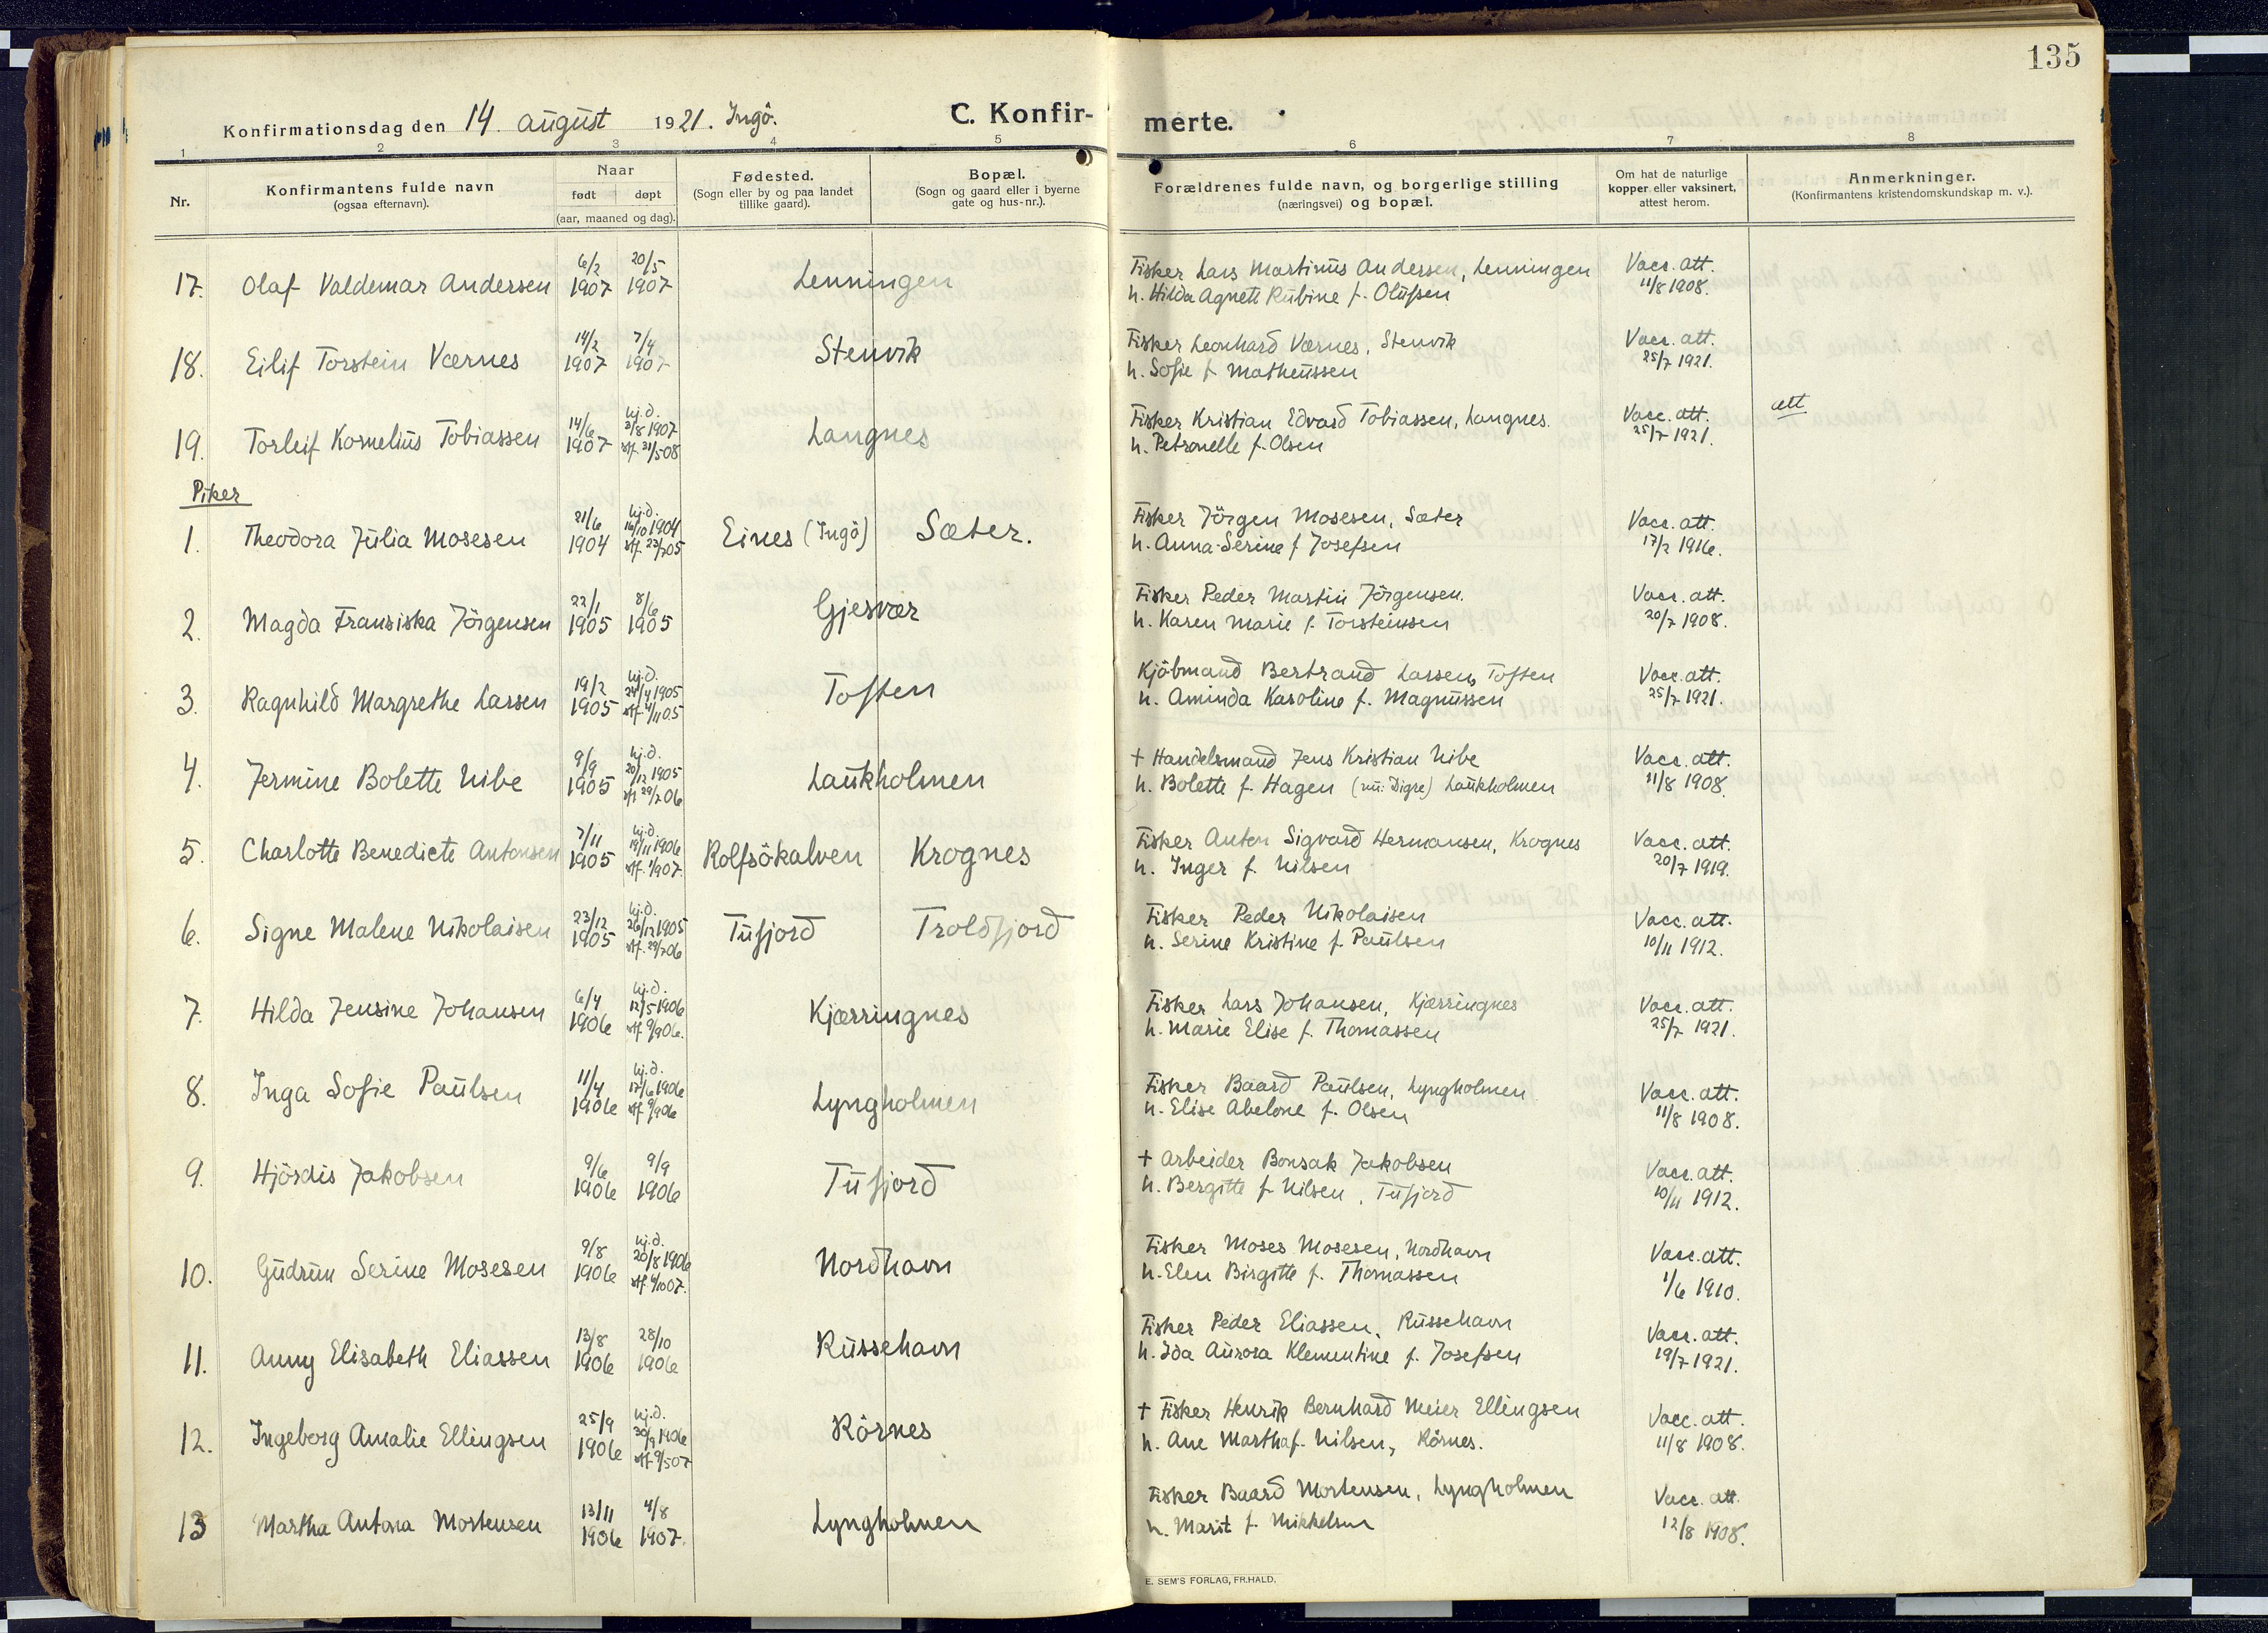 135
Konfirmationsdag den 14. august 1921. Ingö.
C. Konfirmerte.
1 2 3 4 5 6 7 8
Nr.
Konfirmantens fulde navn
(ogsaa efternavn).
Naar
født døpt
(aar, maaned og dag).
Fødested.
(Sogn eller by og paa landet
tillike gaard).
Bopæl.
(Sogn og gaard eller i byerne
gate og hus-nr.).
Forældrenes fulde navn, og borgerlige stilling
(næringsvei) og bopæl.
Om hat de naturlige
kopper eller vaksinert,
attest herom.
Anmerkninger.
(Konfirmantens kristendomskundskap m. v.).
17. Olaf Valdemar Andersen 6/2 1907 20/5 1907 Lenningen Fisker Lars Martinus Andersen, Lenningen Vacc. att.
h. Hilda Agnete Rubine f. Olufsen 11/8 1908.
18. Eilif Torstein Værnes 14/2 1907 7/4 1907 Stenvik Fisker Leonhard Værnes, Stenvik Vacc. att.
h. Sofie f Matheussen 25/7 1921.
19. Torleif Kornelius Tobiassen 14/6 1907 hj.d. 2/8 1907 stf. 31/5 08 Langnes Fisker Kristian Edvard Tobiassen, Langnes. Vacc. att. att
h. Petronelle f. Olsen 25/7 1921.
Piker
1. Theodora Julia Mosesen 21/6 1904 hj.d. 16/10 1904 stf. 23/7 05 Eines (Ingö) Sæter. Fisker Jörgen Mosesen, Sæter Vacc. att.
h. Anna Serine f Josefsen 17/2 1916.
2. Magda Fransiska Jörgensen 22/1 1905 8/6 1905 Gjesvær Fisker Peder Martin Jörgensen. Vacc. att.
h. Karen Marie f. Torsteinsen 20/7 1908.
3. Ragnhild Margrethe Larsen 19/2 1905 hj.d. 24/4 1905 stf. 4/11 05 Toften Kjöbmand Bertrand Larsen, Toften Vacc. att.
h. Aminda Karoline f. Magnussen 25/7 1921.
4. Jermine Bolette Nibe 9/9 1905 hj.d. 20/12 1905 stf. 29/7 06 Laukholmen + Handelsmand Jens Kristian Nibe Vacc. att.
h. Bolette f. Hagen (nu: Digre) Laukholmen 11/8 1908.
5. Charlotte Benedicte Antonsen 7/11 1905 hj.d. 19/11 1906 stf. 1/9 07. Rolfsökalven Krognes Fisker Anton Sigvard Hermansen, Krognes Vacc. att.
h. Inger f. Nilsen 20/7 1919.
6. Signe Malene Nikolaisen 23/12 1905 hj.d. 26/12 1905 stf. 29/7 06 Tufjord Troldfjord Fisker Peder Nikolaisen Vacc. att.
h. Serine Kristine f. Paulsen 10/11 1912.
7. Hilda Jensine Johansen 6/4 1906 hj.d. 12/5 1906 stf. 9/9 06. Kjærringnes Fisker Lars Johansen, Kjærringnes Vacc. att.
h. Marie Elise f. Thomassen 25/7 1921.
8. Inga Sofie Paulsen 11/4 1906 hj.d. 17/6 1906 stf. 9/9 06 Lyngholmen Fisker Baard Paulsen, Lyngholmen Vacc. att.
h. Elise Abelone f. Olsen 11/8 1908.
9. Hjördis Jakobsen 9/6 1906 9/9 1906 Tufjord + Arbeider Bonsak Jakobsen Vacc. att.
h. Bergitte f Nilsen, Tufjord 10/11 1912.
10. Gudrun Serine Mosesen 9/8 1906 hj.d. 20/8 1906 stf. 6/10 07. Nordhavn Fisker Moses Mosesen, Nordhavn Vacc. att.
h. Elen Birgitte f. Thomassen 1/6 1910.
11. Anny Elisabeth Eliassen 13/8 1906 28/10 1906 Russehavn Fisker Peder Eliassen, Russehavn Vacc. att.
h. Ida Aurora Klementine f. Josefsen 19/7 1921.
12. Ingeborg Amalie Ellingsen 25/9 1906 hj.d. 30/9 1906 stf. 9/5 07 Körnes + Fisker Henrik Bernhard Meier Ellingsen Vacc. att.
h. Ane Martha f. Nilsen, Körnes. 11/8 1908.
13 Martha Antona Mortensen 13/11 1906 4/8 1907. Lyngholmen Fisker Baard Mortensen, Lyngholmen Vacc. att.
h. Marit f Mikkelsen 12/8 1908.
E. SEM'S FORLAG, FR.HALD.